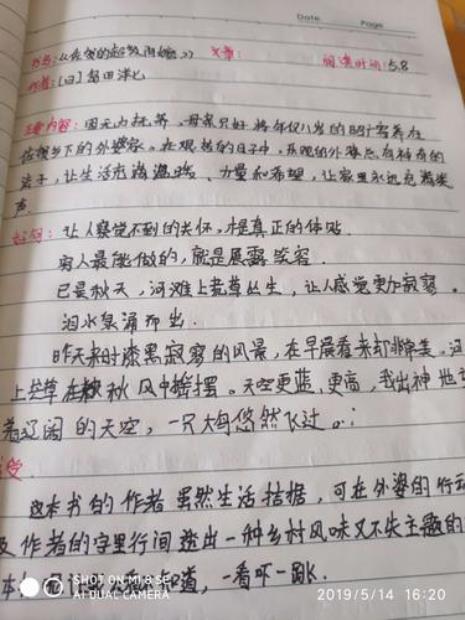 Date Page
书名:《佐贺的超级阿嬷》 文章: 阅读时间:5.8
作者:[日]岛田洋七
主要内容:因无力抚养,母亲只好将年仅八岁的昭广寄养在
佐贺乡下的外婆家。在艰苦的日子中,乐观的外婆总有神奇的
法子,让生活充满温暖、力量和希望,让家里永远充满笑
声
好句:让人察觉不到的关怀,才是真正的体贴.
穷人最能做的,就是展露笑容.
已是秋天,河滩上荒草丛生,让人感觉更加寂寥。
泪水泉涌而出.
昨天来时漆黑寂寥的风景,在早晨看来却非常美。河
上芒草在秋风中摇摆。天空更蓝、更高,我出神地
着辽阔的天空,一只大鸟悠然飞过。
受
这本书的作者虽然生活拮据,可在外婆的行动
及作者的字里行间透出一种乡村风味又不失主题的
本 知道,一看吓一跳.
SHOT ON MI 8 SE
AI DUAL CAMERA
2019/5/14 16:20